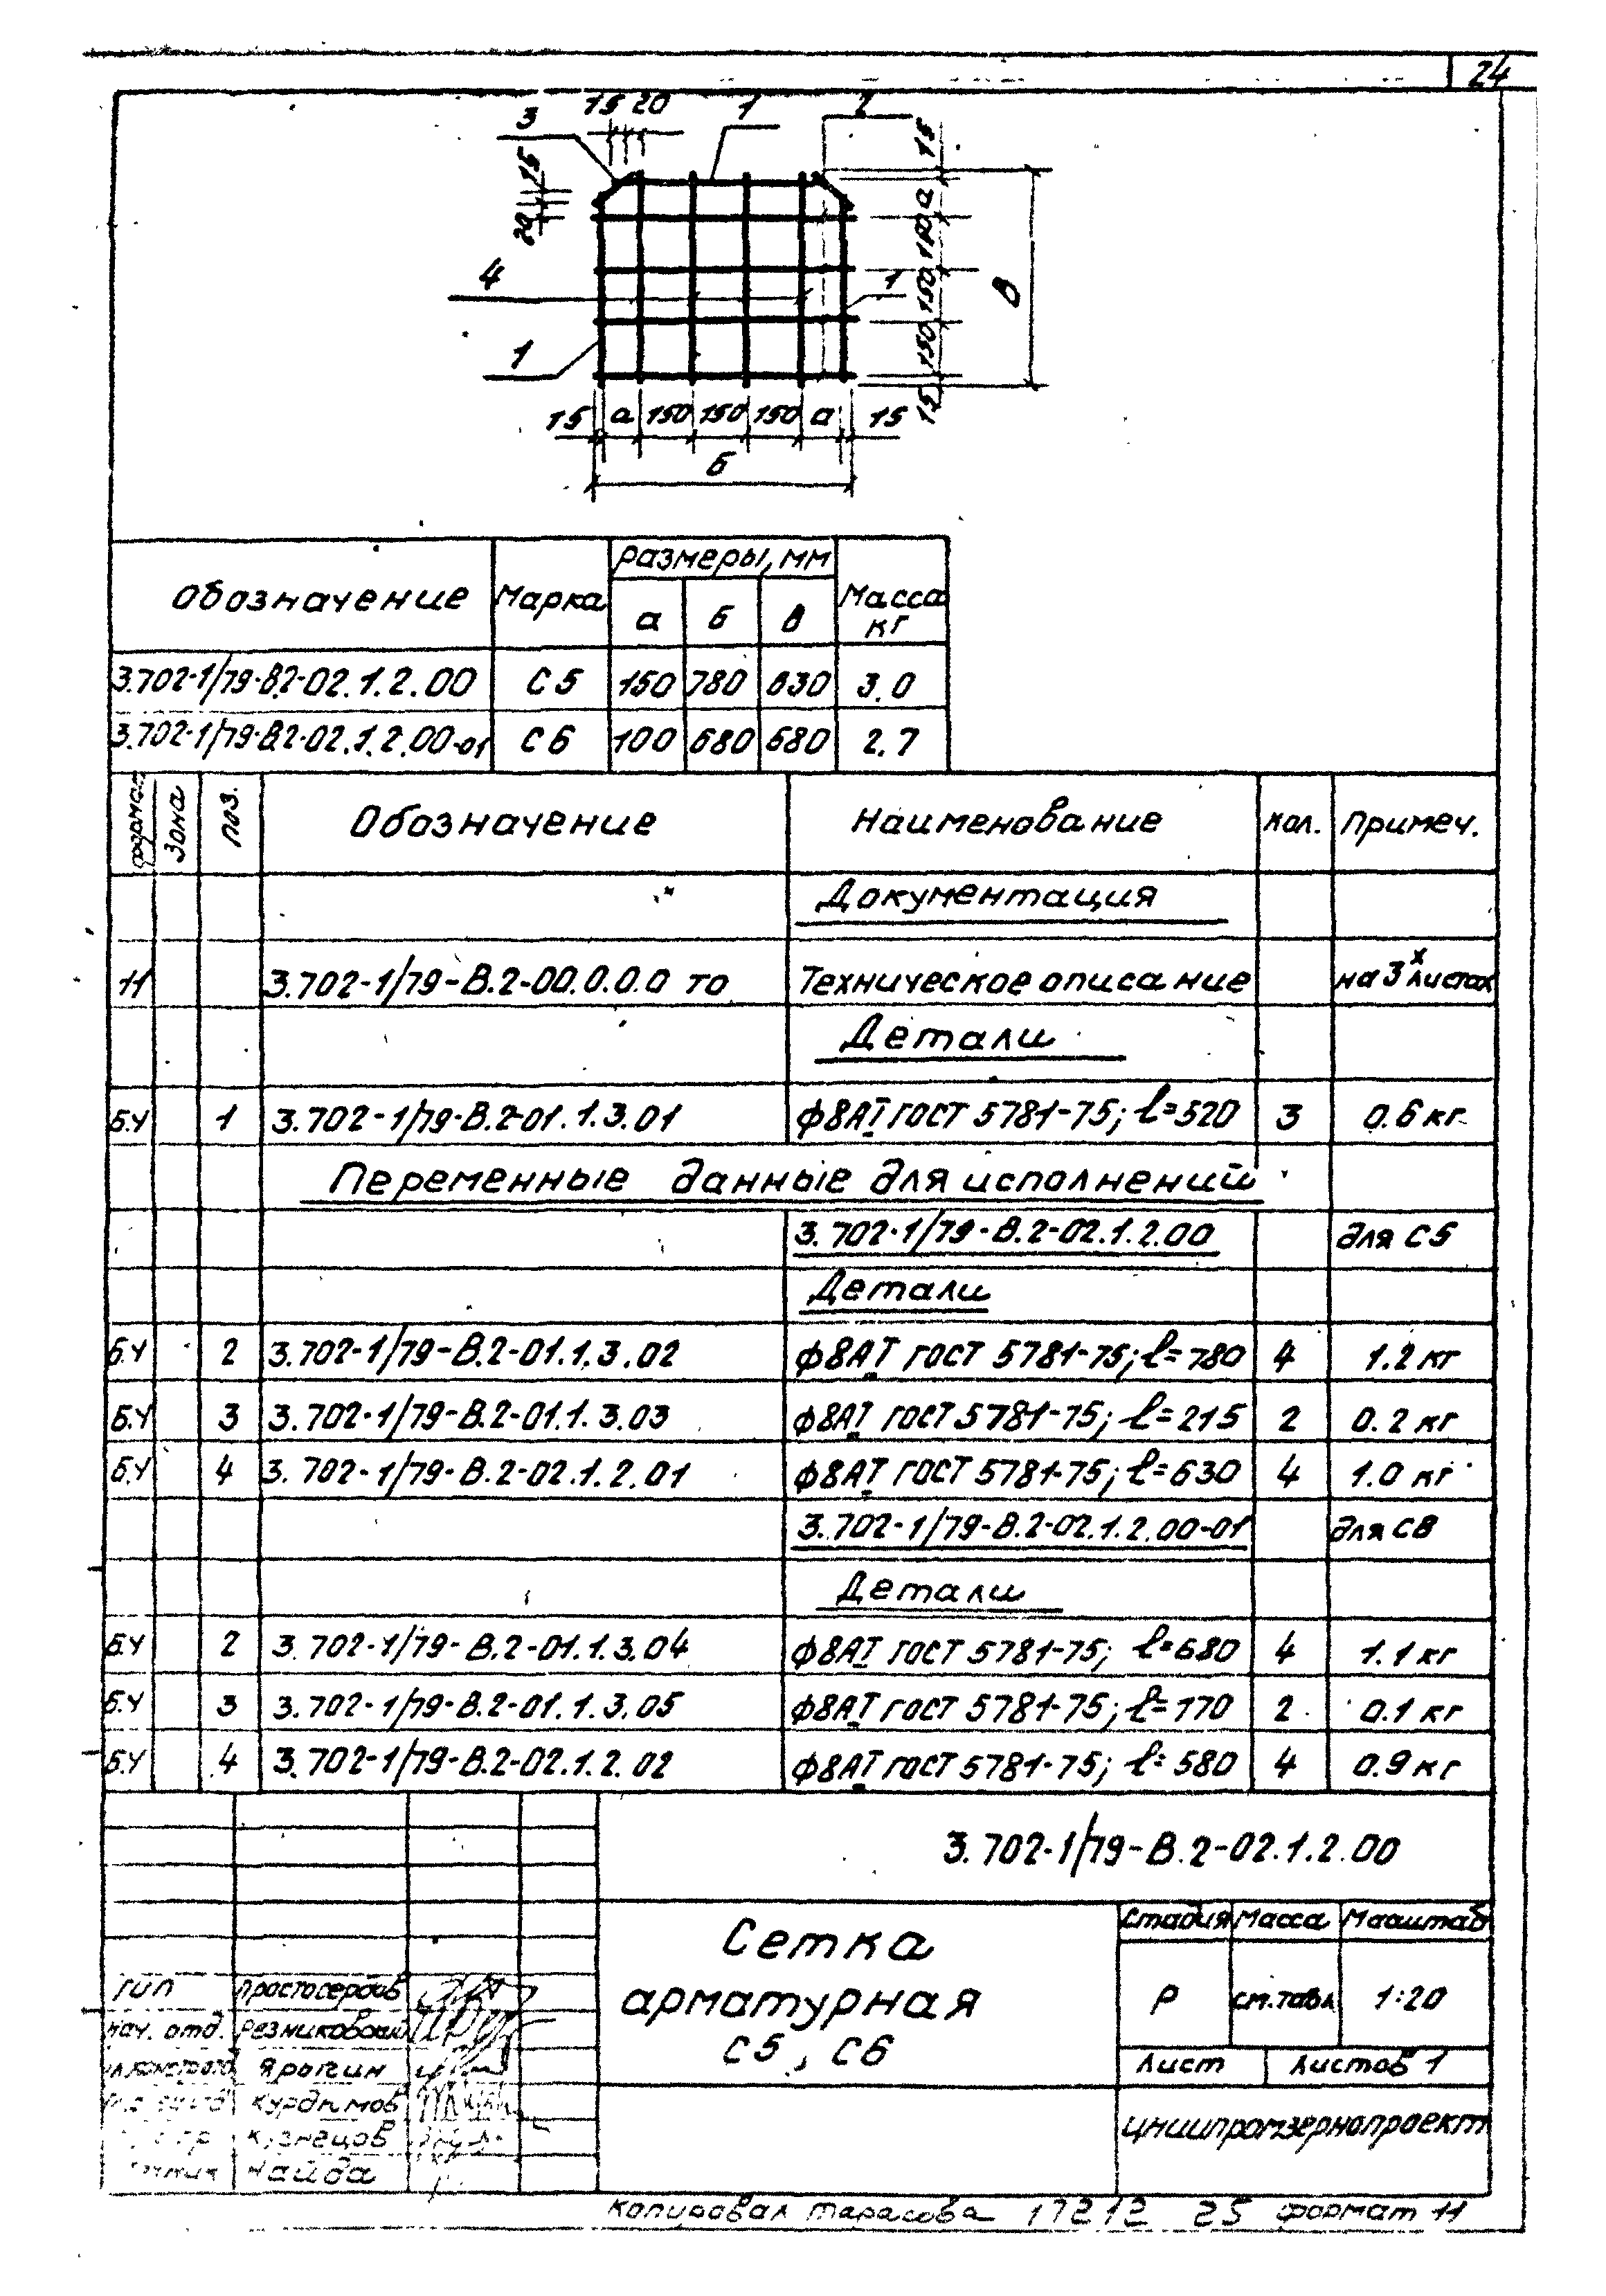 24
3 15 20 1 2
15
15 а
20 110
4 1 150 В
150
1
15
15 а 150 150 150 а 15
Б
Обозначение Марка Размеры, мм Масса кг
а Б В
3.702-1/79-В.2-02.1.2.00 С5 150 780 630 3.0
3.702-1/79-В.2-02.1.2.00-01 С6 100 680 680 2.7
Формат Зона Поз. Обозначение Наименование Кол. Примеч.
Документация
11 3.702-1/79-В.2-00.0.0.0 ТО Техническое описание на 3х листах
Детали
Б.Ч 1 3.702-1/79-В.2-01.1.3.01 ф8АI ГОСТ 5781-75; ℓ=520 3 0.6 кг
Переменные данные для исполнений
3.702-1/79-В.2-02.1.2.00 для С5
Детали
Б.Ч 2 3.702-1/79-В.2-01.1.3.02 ф8АI ГОСТ 5781-75; ℓ=780 4 1.2 кг
Б.Ч 3 3.702-1/79-В.2-01.1.3.03 ф8АI ГОСТ 5781-75; ℓ=215 2 0.2 кг
Б.Ч 4 3.702-1/79-В.2-02.1.2.01 ф8АI ГОСТ 5781-75; ℓ=630 4 1.0 кг
3.702-1/79-В.2-02.1.2.00-01 для С6
Детали
Б.Ч 2 3.702-1/79-В.2-01.1.3.04 ф8АI ГОСТ 5781-75; ℓ=680 4 1.1 кг
Б.Ч 3 3.702-1/79-В.2-01.1.3.05 ф8АI ГОСТ 5781-75; ℓ=170 2 0.1 кг
Б.Ч 4 3.702-1/79-В.2-02.1.2.02 ф8АI ГОСТ 5781-75; ℓ=580 4 0.9 кг
3.702-1/79-В.2-02.1.2.00
Сетка
арматурная
С5, С6
Стадия Масса Масштаб
Р см.табл 1:20
Лист Листов 1
ЦНИИпромзернопроект
ГИП Простосердов
Нач. отд. Резниковский
Ярокин
Курдимов
Кузнецов
Найда
Копировал Тарасова 17212 25 Формат 11